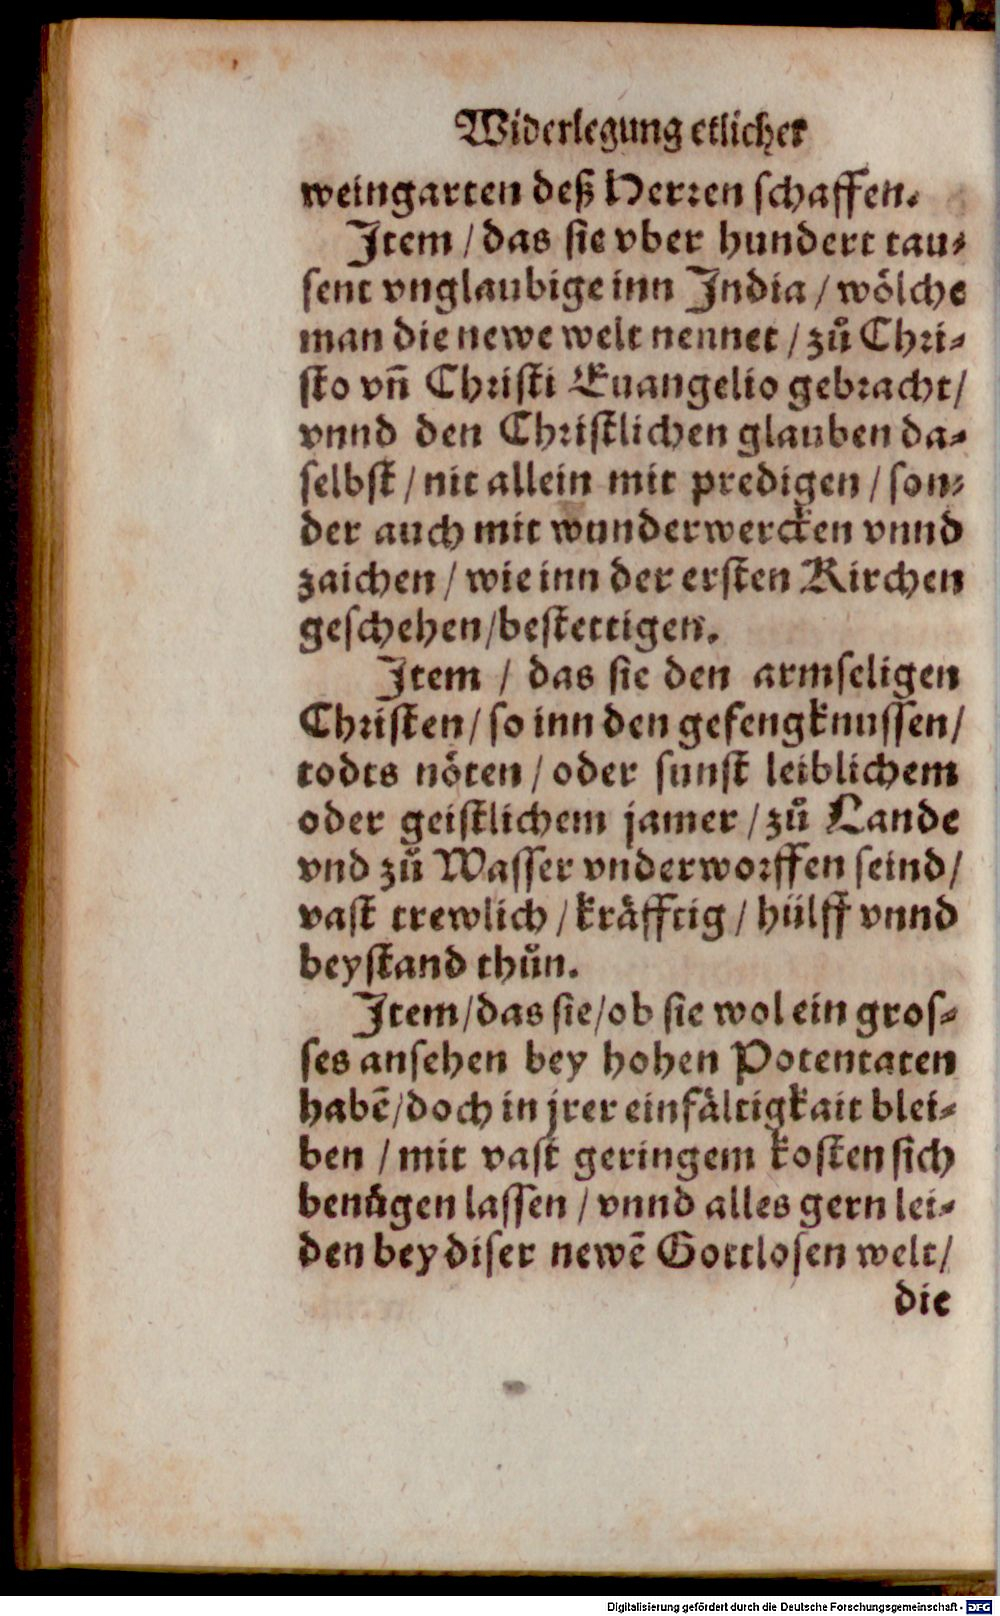 Widerlegung etlicher
weingarten deß Herren schaffen.
Item / das sie vber hundert tau-
sent vnglaubige inn India / wölche
man die newe welt nennet / zů Chri-
sto vñ Christi Euangelio gebracht /
vnnd den Christlichen glauben da-
selbst / nit allein mit predigen / son-
der auch mit wunderwercken vnnd
zaichen / wie inn der ersten Kirchen
geschehen / bestettigen.
Item / das sie den armseligen
Christen / so inn den gefengknussen /
todts nöten / oder sunst leiblichem
oder geistlichem jamer / zů Lande
vnd zů Wasser vnderworffen seind /
vast trewlich / kräfftig / hülff vnnd
beystand thůn.
Item / das sie / ob sie wol ein gros-
ses ansehen bey hohen Potentaten
habē / doch in jrer einfältigkait blei-
ben / mit vast geringem kosten sich
benůgen lassen / vnnd alles gern lei-
den bey diser newē Gottlosen welt /
die
Digitalisierung gefördert durch die Deutsche Forschungsgemeinschaft - DFG